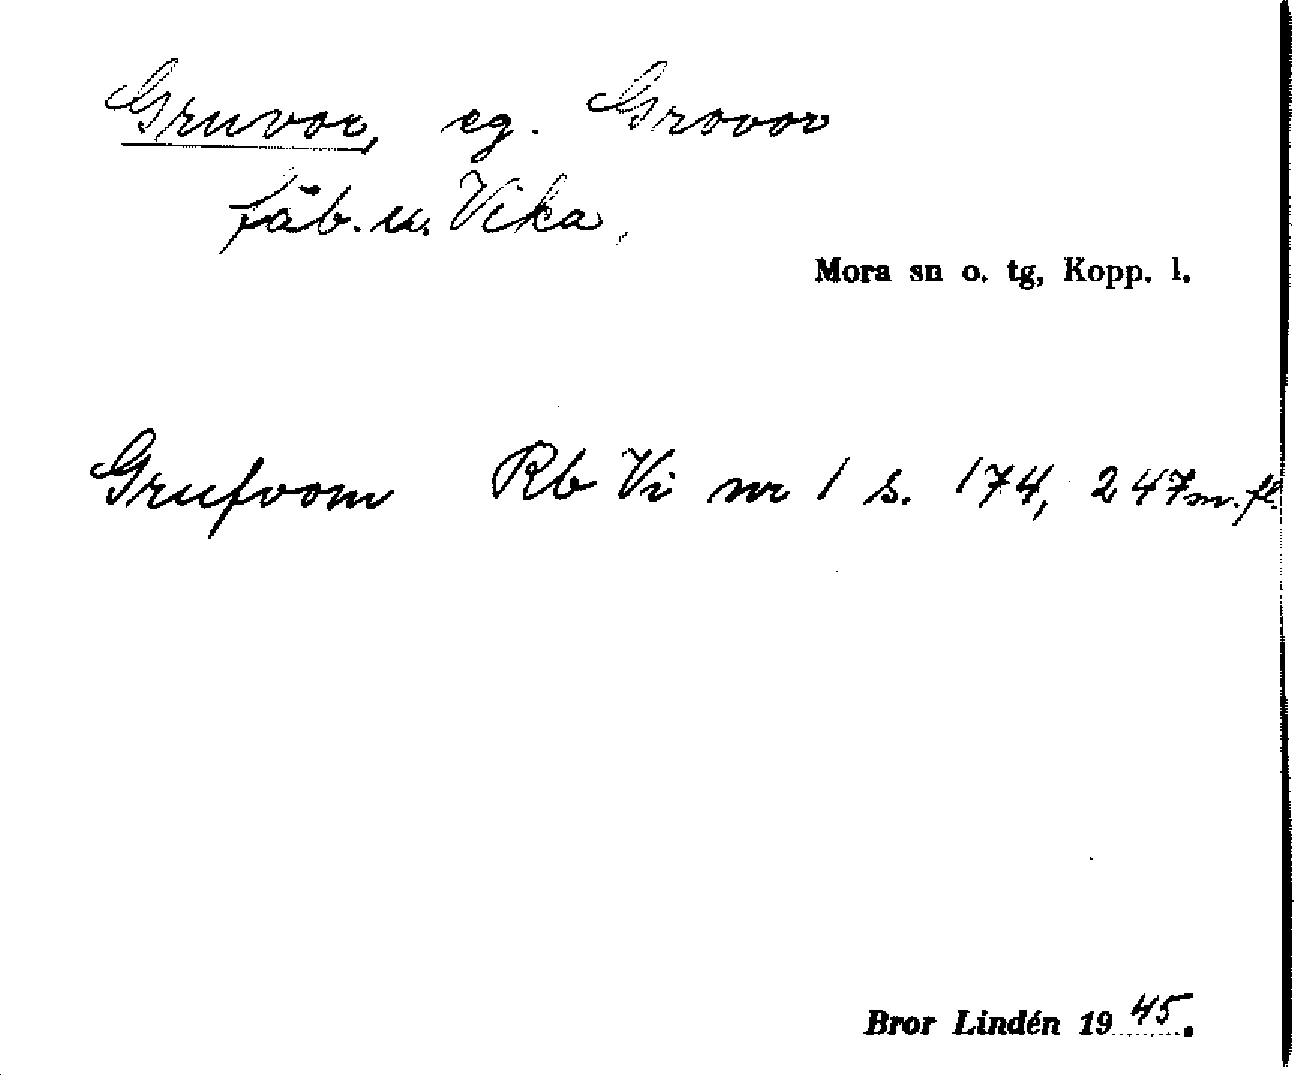 Gruvor, eg. Grovor
fäb. u. Vika.
Mora sn o. tg, Kopp. l.
Grufvorn Rb Vi nr 1 s. 174, 247 m. fl.
Bror Lindén 1945.